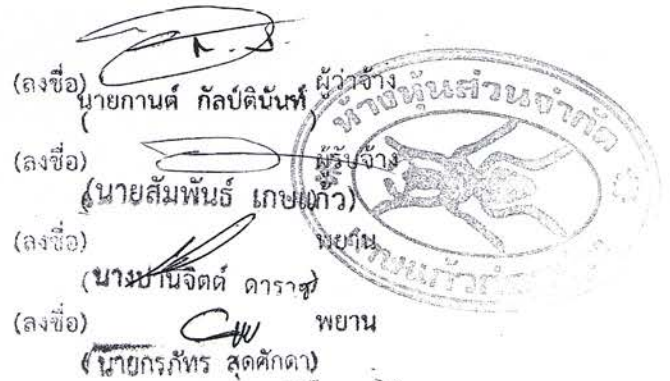 (ลงชื่อ) ผู้ว่าจ้าง
นายกานต์ กัลป์ตินันท์
(ลงชื่อ) ผู้รับจ้าง
(นายสัมพันธ์ เกษแก้ว)
(ลงชื่อ) พยาน
(นางปานจิตต์ ดาราช)
(ลงชื่อ) พยาน
(นายกรภัทร สุดศักดา)
ห้างหุ้นส่วนจำกัด